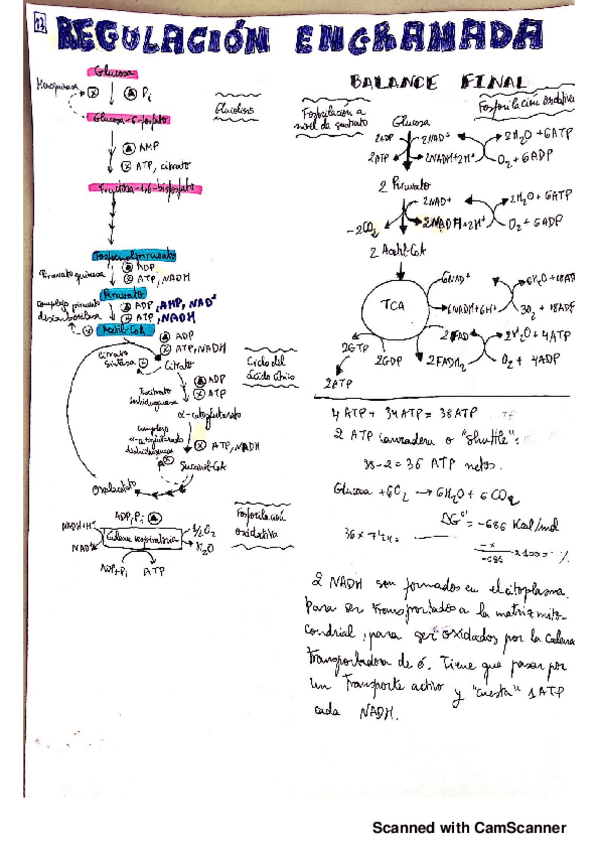 22
REGULACIÓN ENGRAMADA
Glucosa
Pi
Glucosa-6-fosfato
Glucolisis
AMP
ATP, citrato
Fructosa-1,6-bisfosfato
Fosfoenolpiruvato
Piruvato quinasa
ADP
ATP, NADH
Piruvato
complejo piruvato
ADP, AMP, NAD+
ATP, NADH
Acetil-CoA
ADP
ATP, NADH
Citrato
sintasa
Citrato
Ciclo del
ácido cítrico
ADP
ATP
Isocitrato
α-cetoglutarato
Complejo
ATP, NADH
Succinil-CoA
Oxalacetato
Fosforilación
oxidativa
ADP, Pi
NADH+H+
Cadena respiratoria
1/2O2
NAD+
H2O
ADP+Pi
ATP
BALANCE FINAL
Fosforilación a
nivel de sustrato
Fosforilación oxidativa
Glucosa
2ADP
2NAD+
2H2O + 6ATP
2ATP
2NADH+2H+
O2 + 6ADP
2 Piruvato
2NAD+
2H2O + 6ATP
-2CO2
2NADH+2H+
O2 + 6ADP
2 Acetil-CoA
6NAD+
6H2O + 18ATP
TCA
6NADH+6H+
3O2 + 18ADP
2FAD
2H2O + 4ATP
2GTP
2GDP
2FADH2
O2 + 4ADP
2ATP
4 ATP + 34 ATP = 38 ATP
2 ATP lanzadera o "shuttle":
38-2 = 36 ATP netos.
Glucosa + 6O2 → 6H2O + 6CO2
ΔG°' = -686 Kcal/mol
36 x 7'3 =
-x
-686
x 100 = %
2 NADH son formados en el citoplasma.
Para ser transportados a la matriz mito-
condrial, para ser oxidados por la cadena
transportadora de é. Tiene que pasar por
un transporte activo y "cuesta" 1 ATP
cada NADH.
Scanned with CamScanner